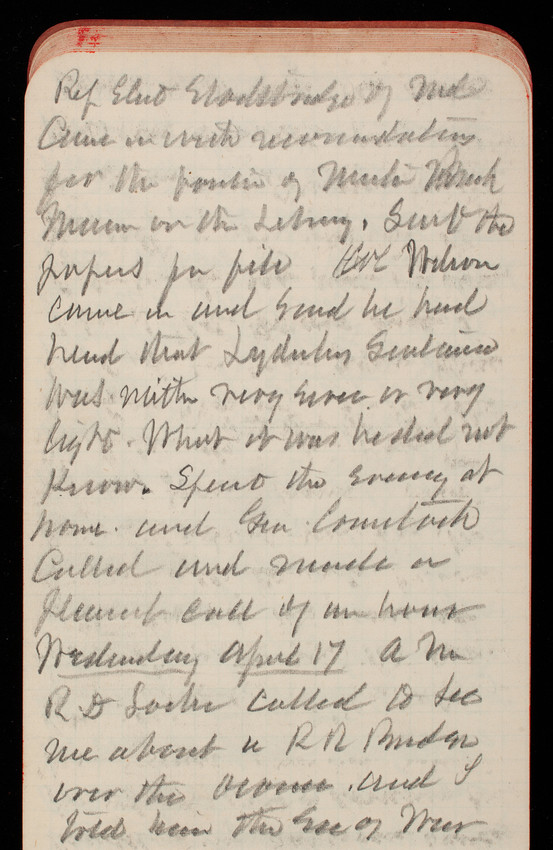 Rep Elect of Md
Came in with recomendation
for the of
in the Library. Sent the
papers for file Col Wilson
came in and said he had
heard that Lydeckers Sentence
was neither very severe or very
light. What it was he did not
know. Spent the evening at
home. and Gen Comstock
Called and made a
pleasant call of an hour
Wednesday April 17 A M
R D called to see
me about a R R Bridge
over the and I
told him the Sec of War